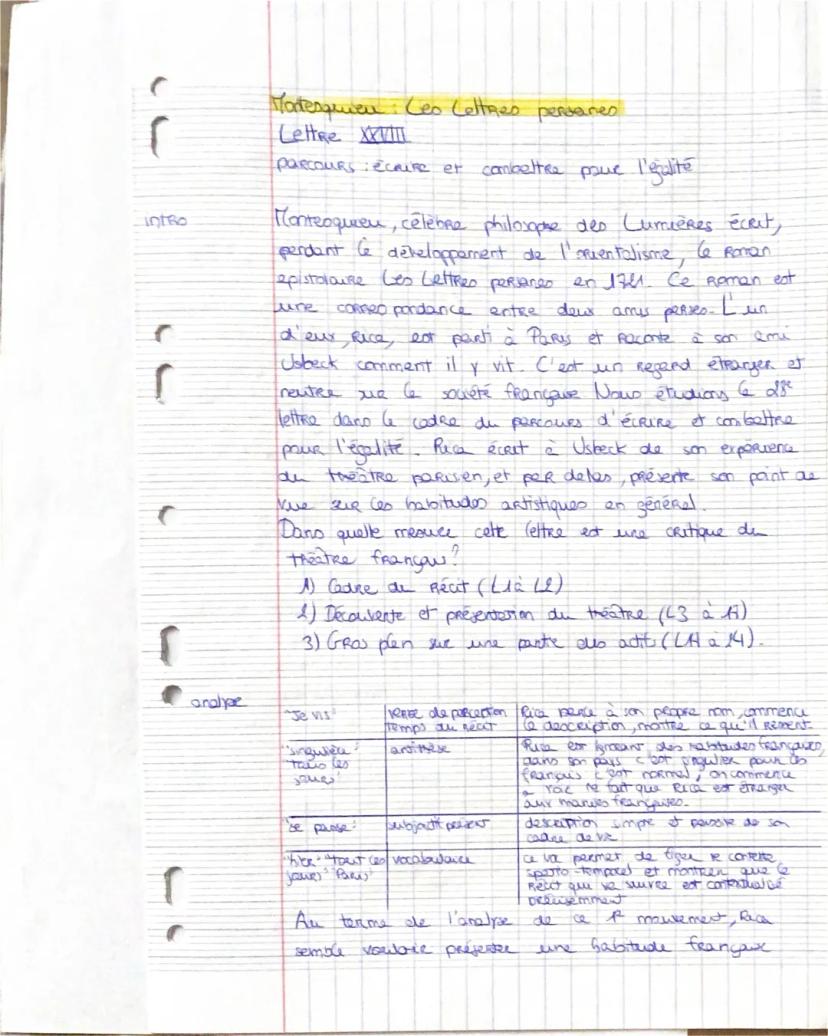 Montesquieu : Les Lettres persanes
Lettre XXVIII
parcours : écrire et combattre pour l'égalité
intro
Montesquieu, célèbre philosophe des Lumières écrit,
pendant le développement de l'orientalisme, le roman
epistolaire Les Lettres persanes en 1721. Ce roman est
une correspondance entre deux amis perses. L'un
d'eux, Rica, est parti à Paris et raconte à son ami
Usbeck comment il y vit. C'est un regard étranger et
neutre sur la société française Nous étudions la 28e
lettre dans le cadre du parcours d'écrire et combattre
pour l'égalité. Rica écrit à Usbeck de son expérience
du théâtre parisien, et par delas, présente son point de
vue sur les habitudes artistiques en général.
Dans quelle mesure cette lettre est une critique du
théâtre français?
1) Cadre du récit (L1 à L2)
2) Découverte et présentation du théâtre (L3 à 11)
3) Gros plan sur une partie des actit (L11 à 14).
analyse
"Je vis" verbe de perception Rica parle à son propre nom, commence
temps du récit la description, montre ce qu'il ressent
"singulière" antithèse Rica est ignorant des habitudes françaises,
"tous les dans son pays c'est singulier pour les
jours" français c'est normal, on commence
à voir le fait que Rica est étranger
aux manières françaises.
"se passe" subjonctif présent description simple et de son
cadre de vie
"hier" "tout les vocabulaire ce va permet de figer le contexte
jours" "Paris" spatio-temporel et montrer que le
récit qui va suivre est contextualisé
précisemment
Au terme de l'analyse de ce 1er mouvement, Rica
semble vouloir présenter une habitude française